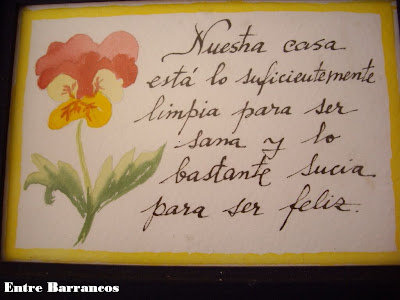 Nuestra casa
está lo suficientemente
limpia para ser
sana y lo
bastante sucia
para ser feliz.
Entre Barrancos